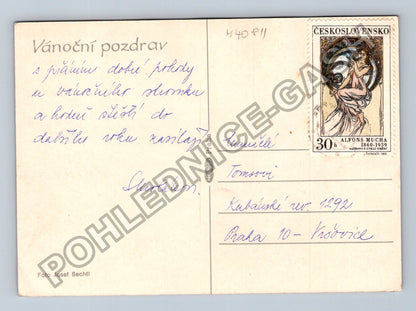 Vánoční pozdrav
s přáním dobré pohody
u vánočního stromku
a hodně štěstí do
dalšího roku zasílají
Foto Josef Sechtl
440 811
ČESKOSLOVENSKO
30 h
ALFONS MUCHA
1860-1939
Tomsovi
Kubánské rev. 1292
Praha 10 - Vršovice
POHLEDNICE-GASY